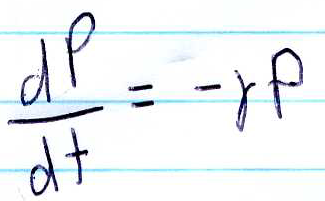 dP/dt = -γP